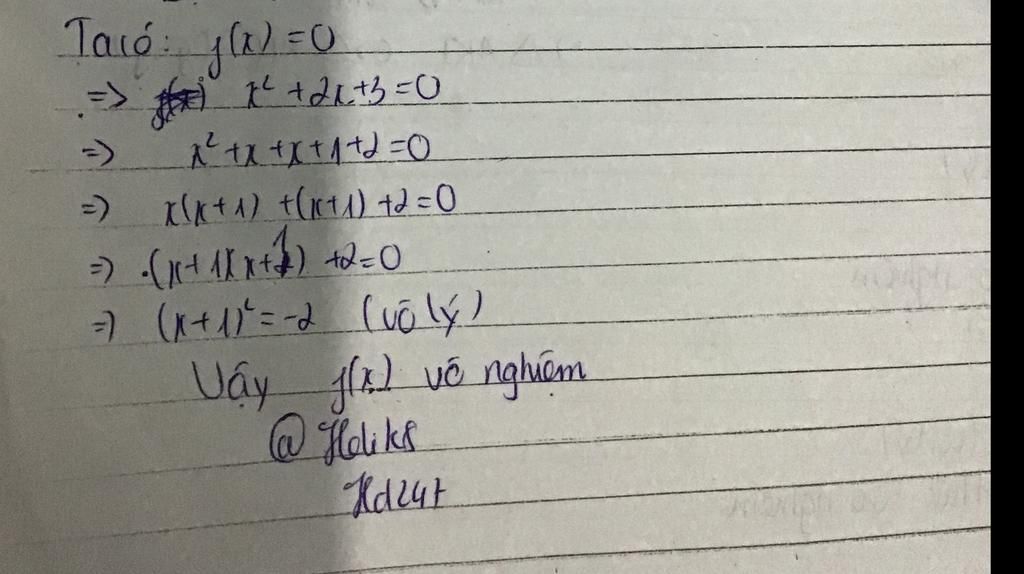 Ta có: f(x) = 0
=> x² + 2x + 3 = 0
=> x² + x + x + 1 + 2 = 0
=> x(x + 1) + (x + 1) + 2 = 0
=> (x + 1)(x + 1) + 2 = 0
=> (x + 1)² = -2 (vô lý)
Vậy f(x) vô nghiệm